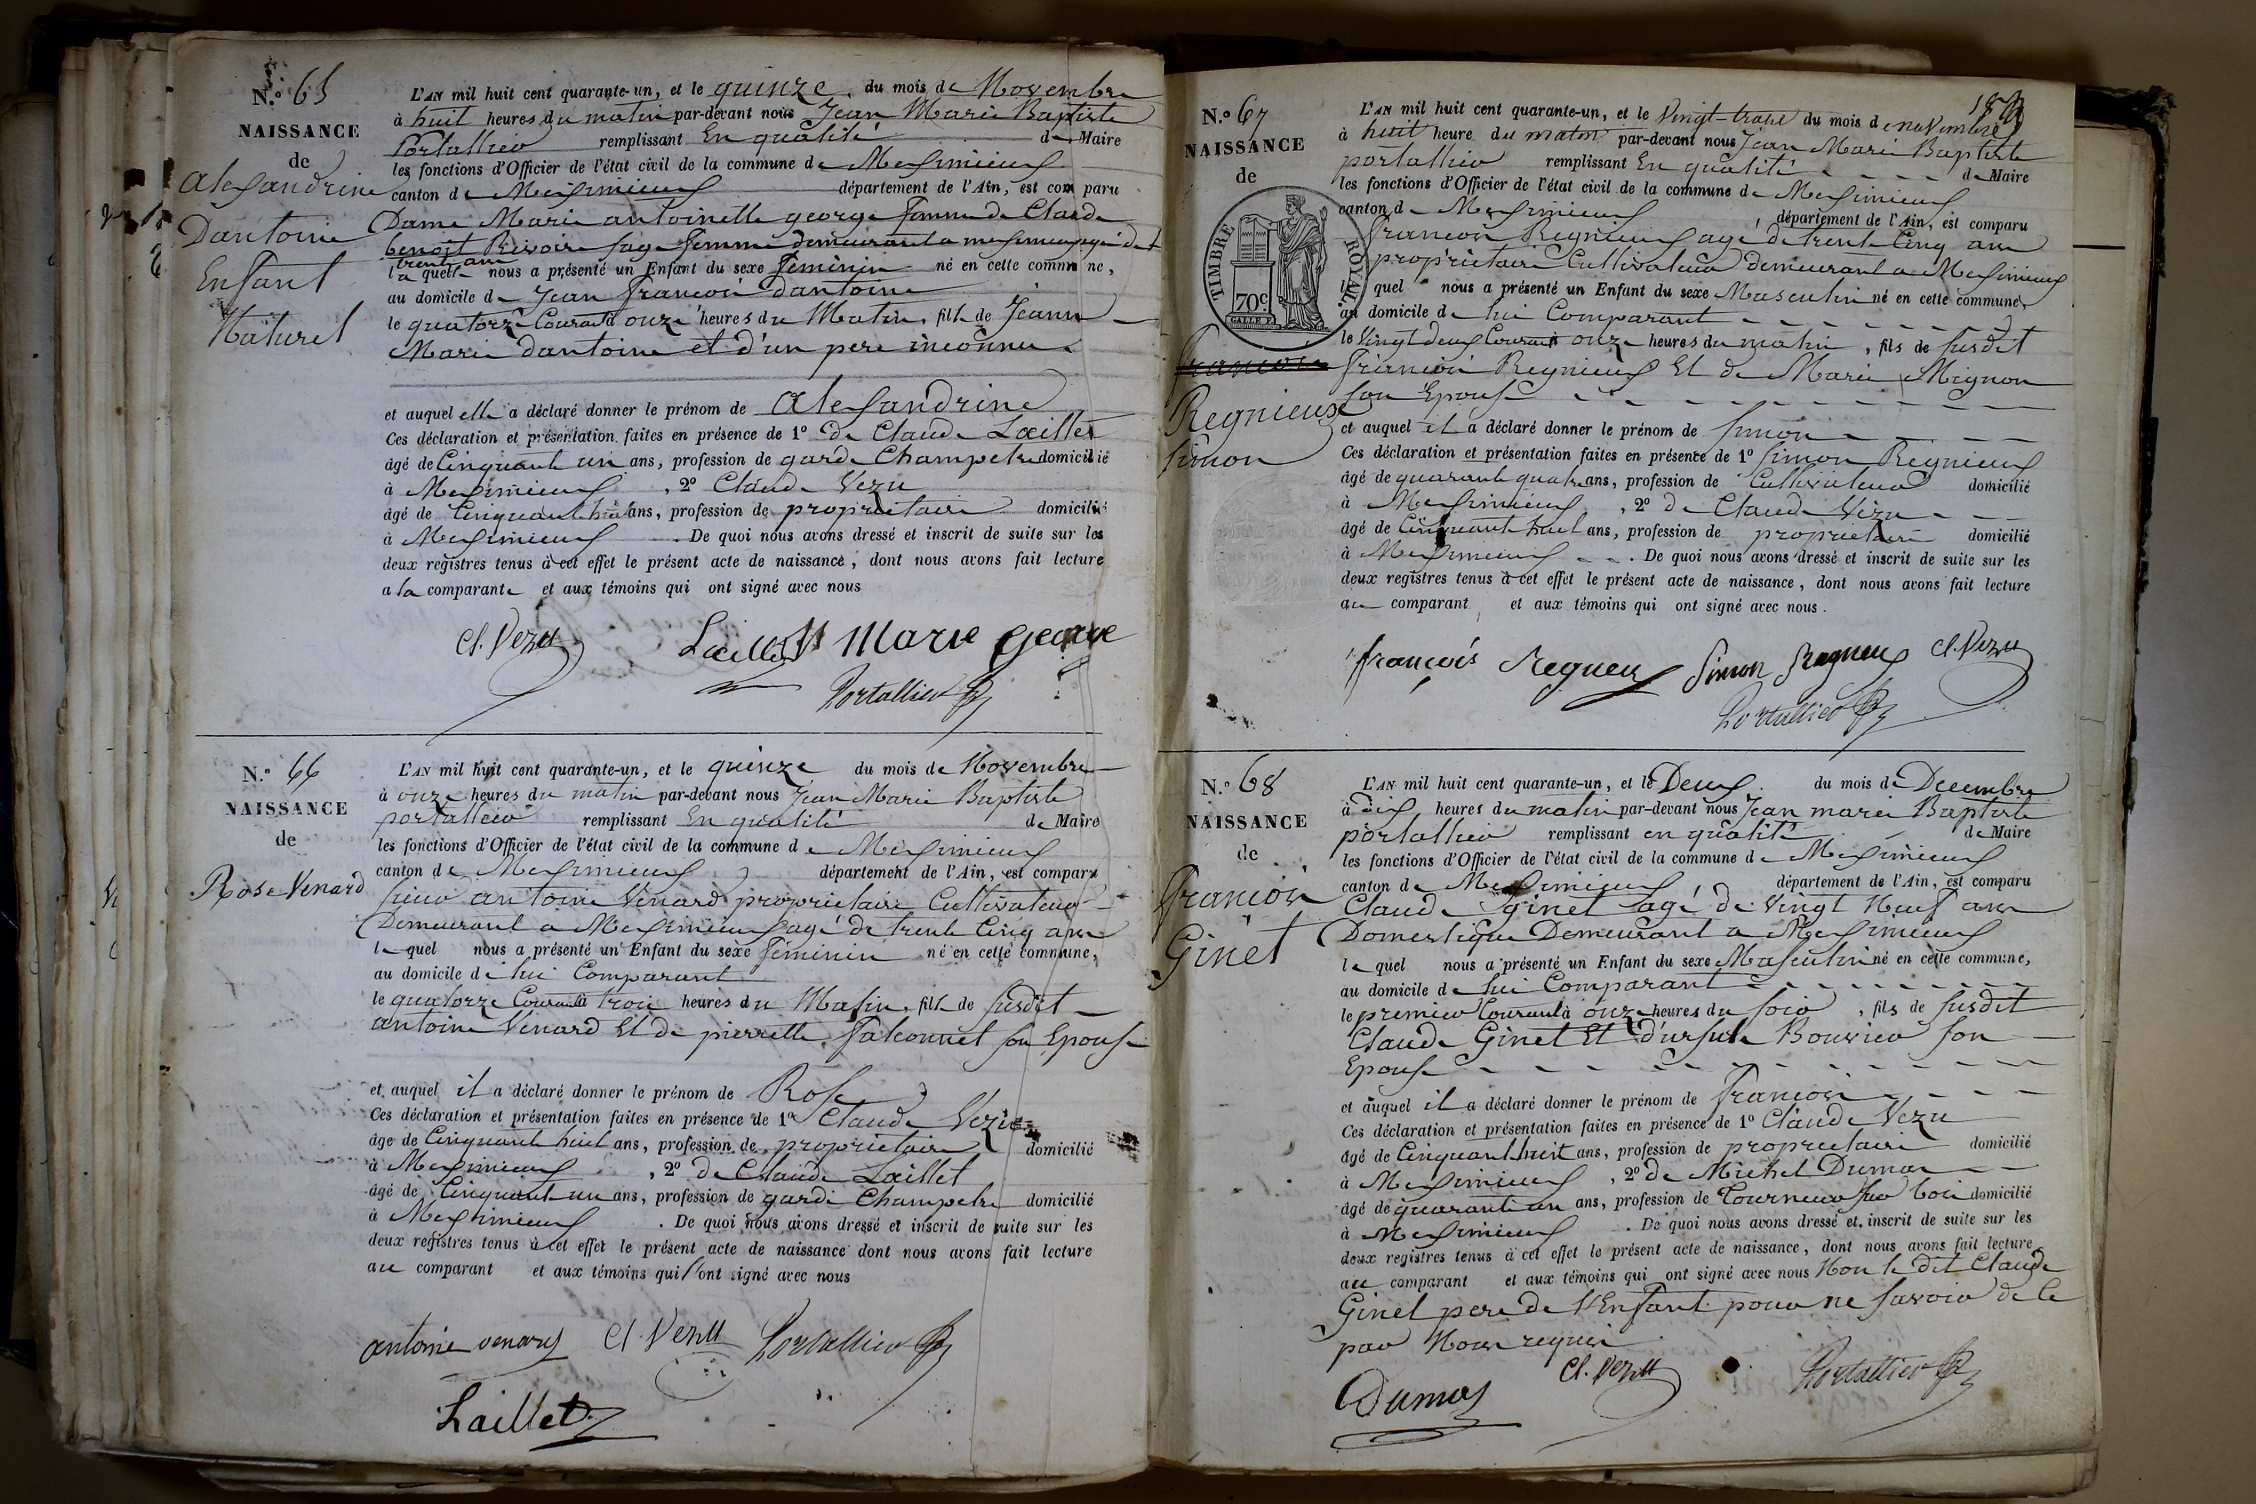 N.o 65
NAISSANCE
de
alexandrine
Dantoine
Enfant
Naturel
L'AN mil huit cent quarante-un, et le quinze du mois de Novembre
à huit heures du matin par-devant nous Jean Marie Baptiste
Portallier remplissant En qualité de Maire
les fonctions d'Officier de l'état civil de la commune de Meximieux
canton de Meximieux département de l'Ain, est comparu
Dame Marie antoinette george femme de Claude
benoit Rivoire sage femme demeurant a meximieux agée de
trente ans
la quelle nous a présenté un Enfant du sexe feminin né en cette commune,
au domicile de Jean francois dantoine
le quatorze Courant à onze heures du Matin, fille de Jeanne
Marie dantoine et d'un pere inconnu
et auquel elle a déclaré donner le prénom de alexandrine
Ces déclaration et présentation faites en présence de 1o de Claude Laillet
âgé de Cinquante un ans, profession de garde Champetre domicilié
à Meximieux, 2o Claude Vezu
âgé de Cinquante huit ans, profession de proprietaire domicilié
à Meximieux. De quoi nous avons dressé et inscrit de suite sur les
deux registres tenus à cet effet le présent acte de naissance, dont nous avons fait lecture
a la comparante et aux témoins qui ont signé avec nous
Cl. Vezu Laillet Marie george
Portallier
N.o 66
NAISSANCE
de
Rose Venard
L'AN mil huit cent quarante-un, et le quinze du mois de Novembre
à onze heures du matin par-devant nous Jean Marie Baptiste
portallier remplissant En qualité de Maire
les fonctions d'Officier de l'état civil de la commune de Meximieux
canton de Meximieux département de l'Ain, est comparu
sieur antoine Venard proprietaire Cultivateur
Demeurant a Meximieux agé de trente Cinq ans
le quel nous a présenté un Enfant du sexe féminin né en cette commune,
au domicile de lui Comparant
le quatorze Courant à trois heures du Matin, fille de susdit
antoine Venard Et de pierrette falconnet son Epouse
et auquel il a déclaré donner le prénom de Rose
Ces déclaration et présentation faites en présence de 1o Claude Vezu
âgé de Cinquante huit ans, profession de proprietaire domicilié
à Meximieux, 2o de Claude Laillet
âgé de Cinquante un ans, profession de garde Champetre domicilié
à Meximieux. De quoi nous avons dressé et inscrit de suite sur les
deux registres tenus à cet effet le présent acte de naissance dont nous avons fait lecture
au comparant et aux témoins qui ont signé avec nous
antoine venard Cl. Vezu Portallier
Laillet
N.o 67
NAISSANCE
de
TIMBRE ROYAL.
70c
francois
Regnieux
simon
L'AN mil huit cent quarante-un, et le Vingt-trois du mois de novembre
à huit heure du matin par-devant nous Jean Marie Baptiste
portallier remplissant En qualité de Maire
les fonctions d'Officier de l'état civil de la commune de Meximieux
canton de Meximieux département de l'Ain, est comparu
francois Regnieux agé de trente Cinq ans
proprietaire Cultivateur demeurant a Meximieux
le quel nous a présenté un Enfant du sexe Masculin né en cette commune,
au domicile de lui Comparant
le Vingt deux Courant à onze heures du matin, fils de susdit
francois Regnieux Et de Marie Mignon
son Epouse
et auquel il a déclaré donner le prénom de simon
Ces déclaration et présentation faites en présence de 1o simon Regnieux
âgé de quarante quatre ans, profession de Cultivateur domicilié
à Meximieux, 2o de Claude Vezu
âgé de Cinquante huit ans, profession de proprietaire domicilié
à Meximieux. De quoi nous avons dressé et inscrit de suite sur les
deux registres tenus à cet effet le présent acte de naissance, dont nous avons fait lecture
au comparant et aux témoins qui ont signé avec nous.
françois Regneux Simon Regneux Cl. Vezu
Portallier
N.o 68
NAISSANCE
de
francois
Ginet
L'AN mil huit cent quarante-un, et le Deux du mois de Decembre
à dix heures du matin par-devant nous Jean marie Baptiste
portallier remplissant en qualité de Maire
les fonctions d'Officier de l'état civil de la commune de Meximieux
canton de Meximieux département de l'Ain, est comparu
Claude ginet agé de Vingt Neuf ans
Domestique Demeurant a Meximieux
le quel nous a présenté un Enfant du sexe Masculin né en cette commune,
au domicile de lui Comparant
le premier Courant à onze heures du soir, fils de susdit
Claude Ginet Et d'ursule Bouvier son
Epouse
et auquel il a déclaré donner le prénom de francois
Ces déclaration et présentation faites en présence de 1o Claude Vezu
âgé de Cinquante huit ans, profession de proprietaire domicilié
à Meximieux, 2o de Michel Dumas
âgé de quarante un ans, profession de Tourneur sur bois domicilié
à Meximieux. De quoi nous avons dressé et inscrit de suite sur les
deux registres tenus à cet effet le présent acte de naissance, dont nous avons fait lecture
au comparant et aux témoins qui ont signé avec nous Non le dit Claude
Ginet pere de l'Enfant pour ne savoir de ce
par Nous requis
Cl. Vezu Portallier
Dumas